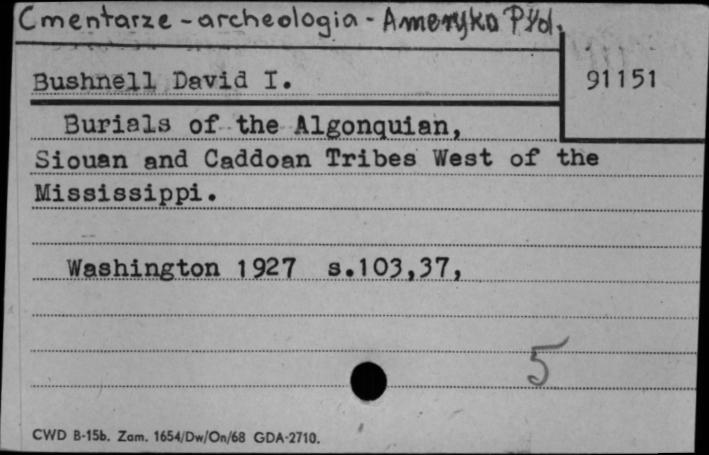 Cmentarze - archeologia - Ameryka Płd.
Bushnell David I.
91151
Burials of the Algonquian,
Siouan and Caddoan Tribes West of the
Mississippi.
Washington 1927 s.103,37,
5
CWD B-15b. Zam. 1654/Dw/On/68 GDA-2710.